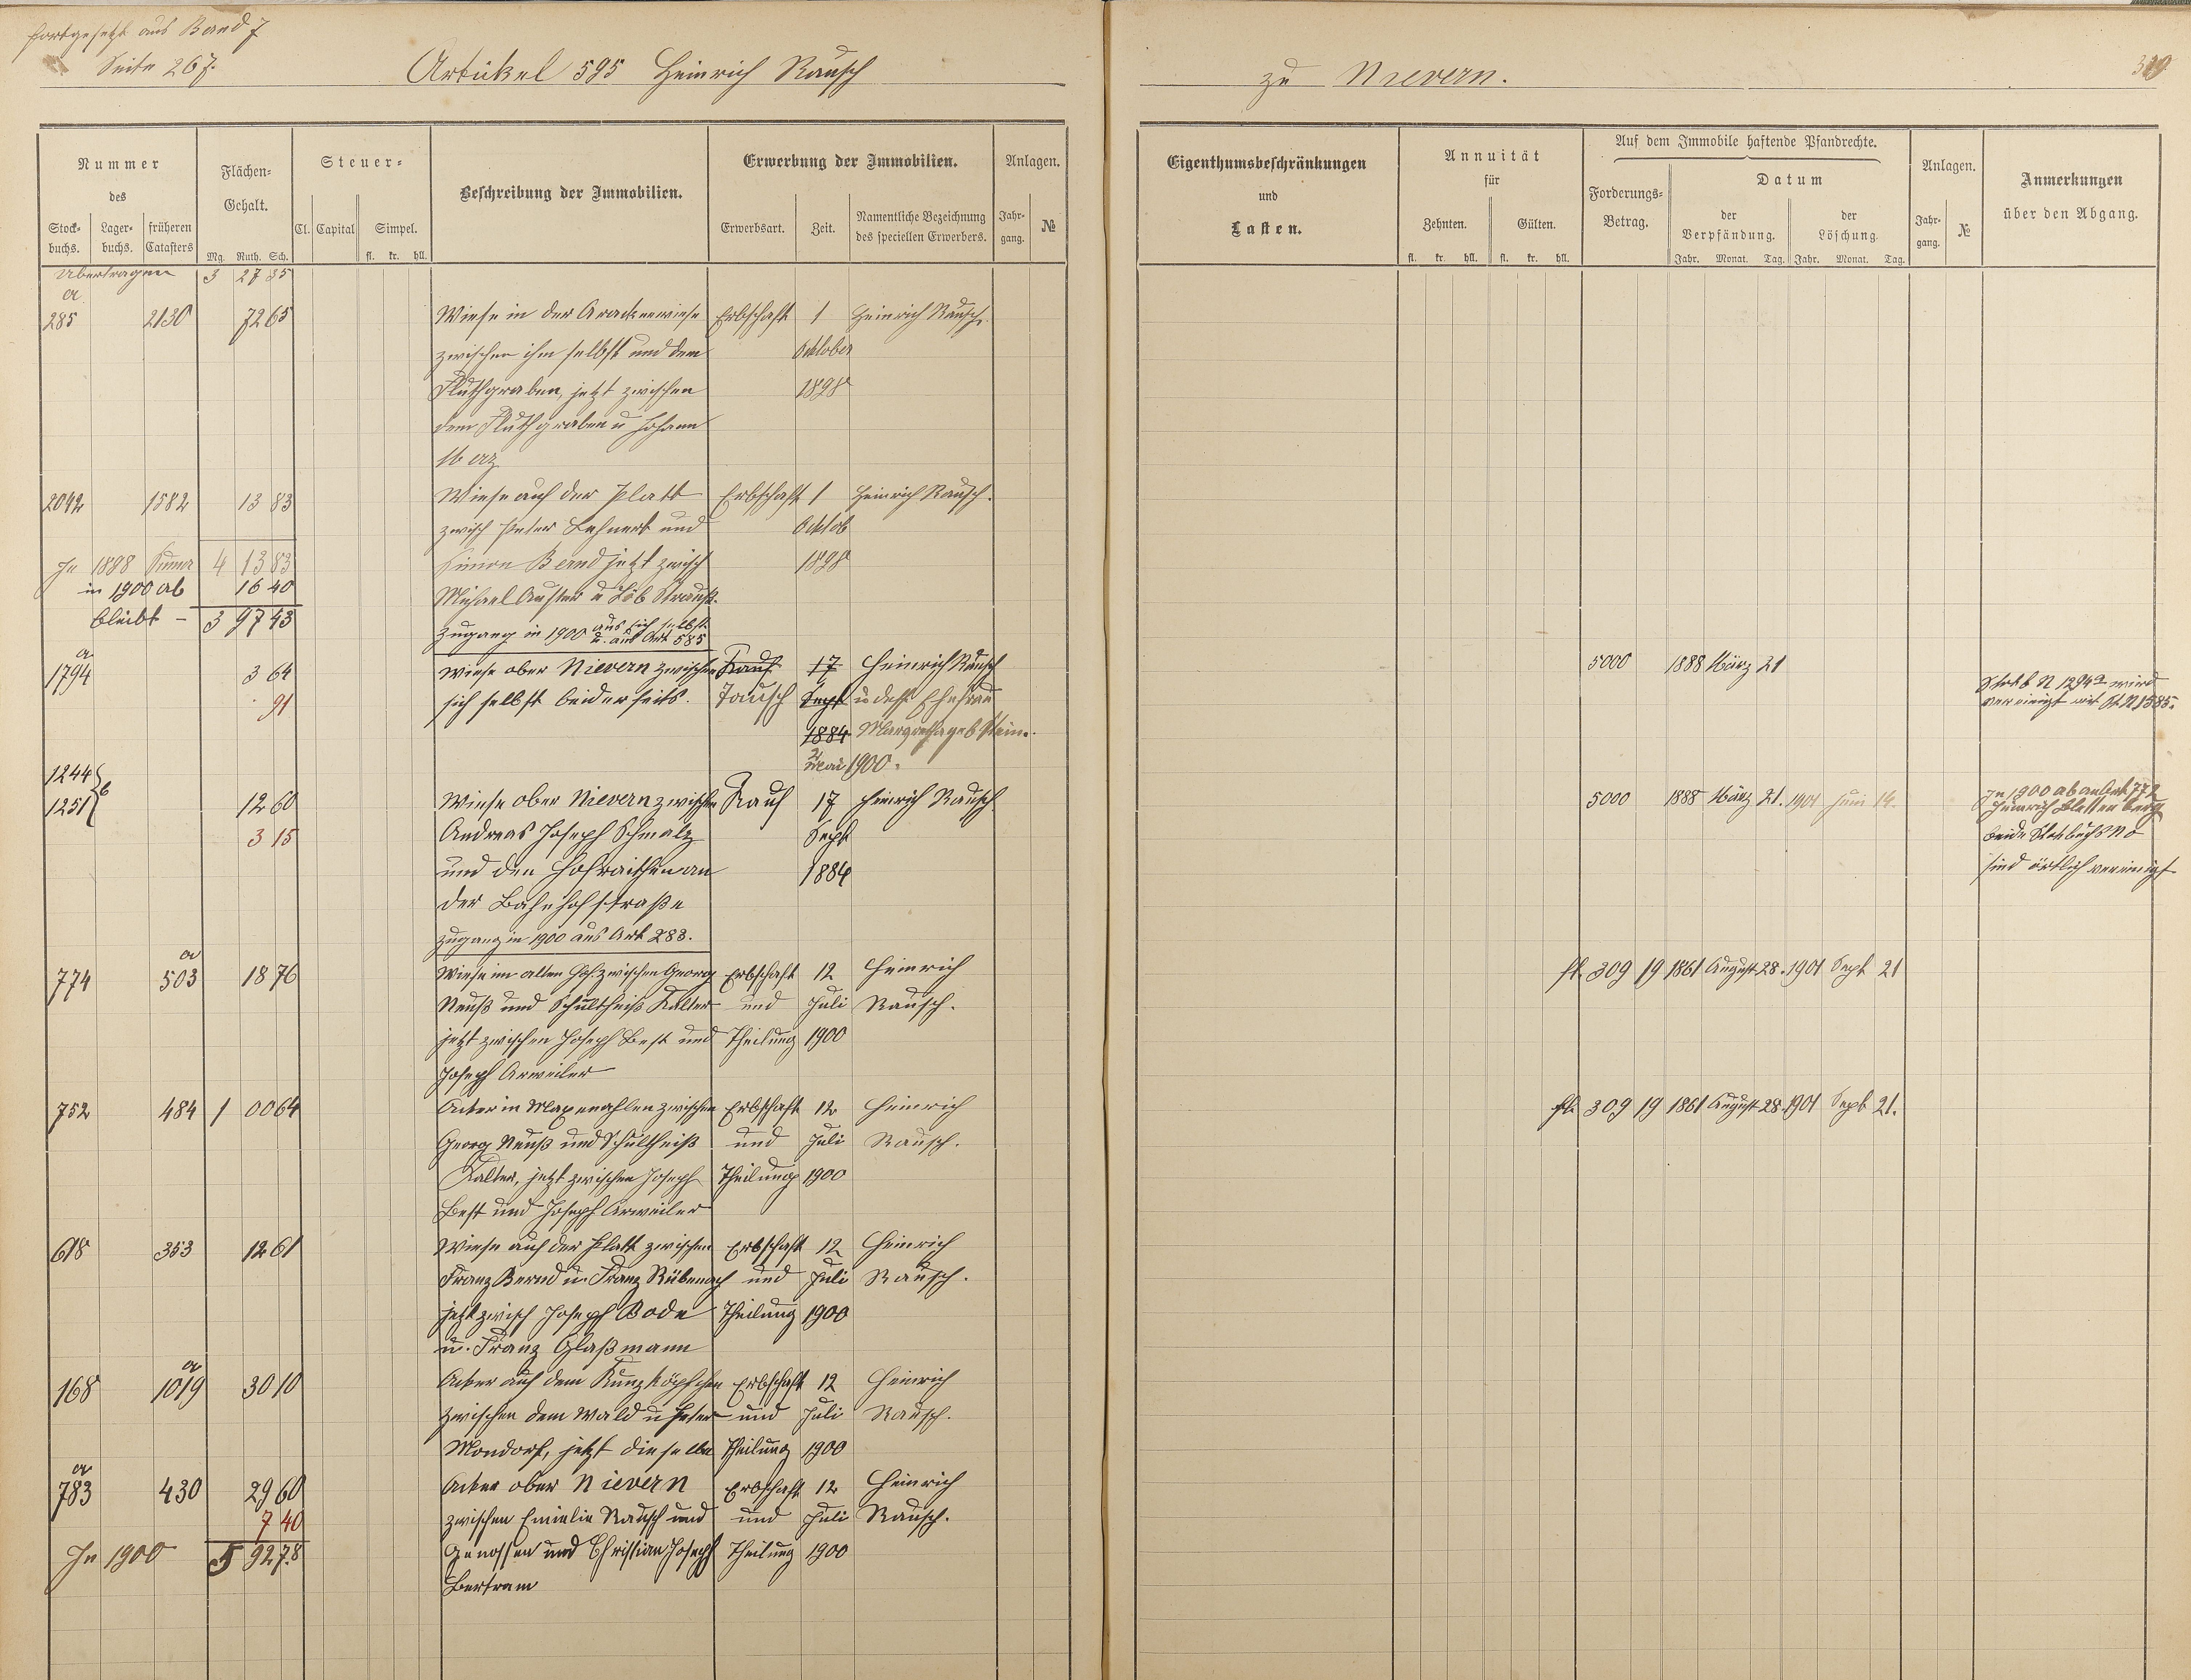 fortgesetzt aus Band 7
Seite 267.
Artikel 595 Heinrich Rausch
zu Nievern.
Nummer
des
Stock-
buchs.
Lager-
buchs.
früheren
Catasters
Flächen-
Gehalt.
Mg. Ruth. Sch.
Steuer-
Cl. Capital Simpel.
fl. kr. hll.
Beschreibung der Immobilien.
Erwerbung der Immobilien.
Erwerbsart. Zeit.
Namentliche Bezeichnung
des speciellen Erwerbers.
Anlagen.
Jahr-
gang.
№
Eigenthumsbeschränkungen
und
Lasten.
Annuität
für
Zehnten. Gülten.
fl. kr. hll. fl. kr. hll.
Auf dem Immobile haftende Pfandrechte.
Forderungs-
Betrag.
Datum
der
Verpfändung.
der
Löschung.
Jahr. Monat. Tag. Jahr. Monat. Tag.
Anlagen.
Jahr-
gang.
№
Anmerkungen
über den Abgang.
Übertragen 3 27 35
a
285 2130 72 65 Wiese in der Erbschaft 1 Heinrich Rausch.
zwischen ihm selbst und dem Oktober
Fluthgraben, jetzt zwischen 1898
dem Fluthgraben u Johann
2042 1582 13 83 Wiese auf der Platt Erbschaft 1 Heinrich Rausch.
zwisch Peter Lehnert und Oktob
In 1898 Summa 4 13 83 Simon Bernd jetzt zwisch 1898
in 1900 ab 16 40 Michael u Löb Strauß.
bleibt - 3 97 43
Zugang in 1900 aus sich selbst
u. aus Art 585
a
1794 3 64 Wiese ober Nievern zwischen Kauf 17 Heinrich Rausch 5000 1888 März 21
91 sich selbst beiderseits. Tausch Sept u dess Ehefrau
1884 Margretha geb
21 Mai 1900.
Stockb N 1294a wird
vereinigt mit St N 1585.
1244
1251 b 12 60 Wiese ober Nievern zwischen Kauf 17 Heinrich Rausch 5000 1888 März 21. 1901 Juni 14.
3 15 Andreas Joseph Schmalz Sept
und den Hofraithen an 1884
der Bahnhofstraße
Zugang in 1900 aus Art 283.
In 1900 ab an Art 772
Heinrich
beide Stockbuchs No
sind örtlich vereinigt
a
774 503 18 76 Wiese im alten zwischen Georg Erbschaft 12 Heinrich fl. 309 19 1861 August 28. 1901 Sept 21
Neuß und Schultheiß Kalter und Juli Rausch.
jetzt zwischen Joseph Best und Theilung 1900
Joseph Arweiler
752 484 1 00 64 Acker in zwischen Erbschaft 12 Heinrich fl. 309 19 1861 August 28. 1901 Sept 21.
Georg Neuß und Schultheiß und Juli Rausch.
Kalter, jetzt zwischen Joseph Theilung 1900
Best und Joseph Arweiler
618 353 12 61 Wiese auf der Platt zwischen Erbschaft 12 Heinrich
Franz Bernd u. Franz Rübenach und Juli Rausch.
jetzt zwisch Joseph Bode Theilung 1900
u. Franz Glaßmann
a
168 1019 30 10 Acker auf dem Kunzköpfchen Erbschaft 12 Heinrich
zwischen dem Wald u Peter und Juli Rausch.
Mondorf, jetzt dieselbe Theilung 1900
a
783 430 29 60 Acker ober Nievern Erbschaft 12 Heinrich
7 40 zwischen Emielie Rausch und und Juli Rausch.
In 1900 5 92 78 Genossen und Christian Joseph Theilung 1900
Bertram